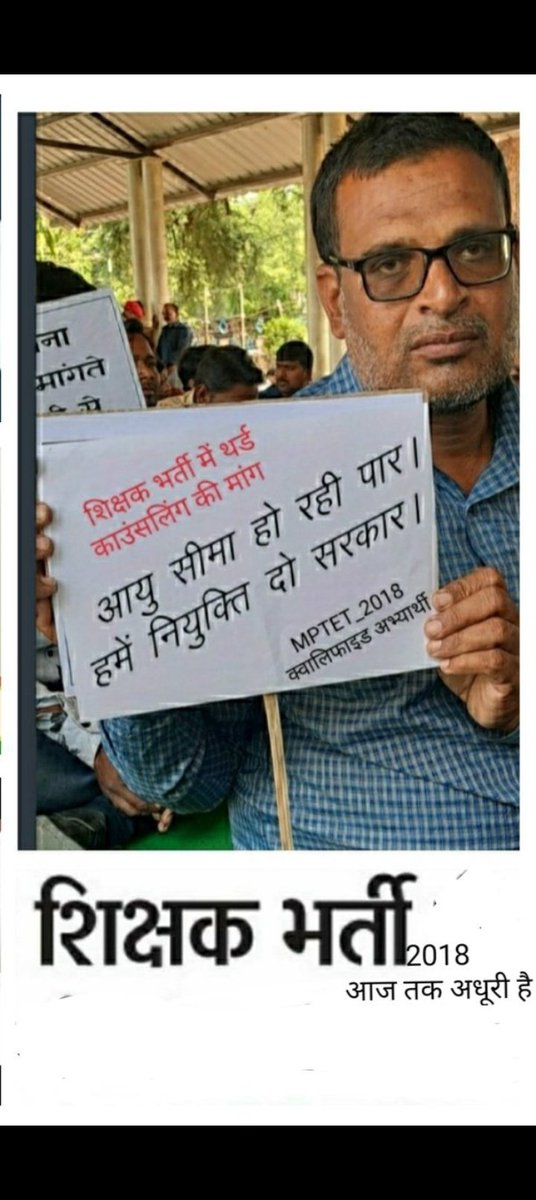 ना
मांगते
शिक्षक भर्ती में थर्ड
काउंसलिंग की मांग
आयु सीमा हो रही पार।
हमें नियुक्ति दो सरकार।
MPTET_2018
क्वालिफाइड अभ्यार्थी
शिक्षक भर्ती 2018
आज तक अधूरी है